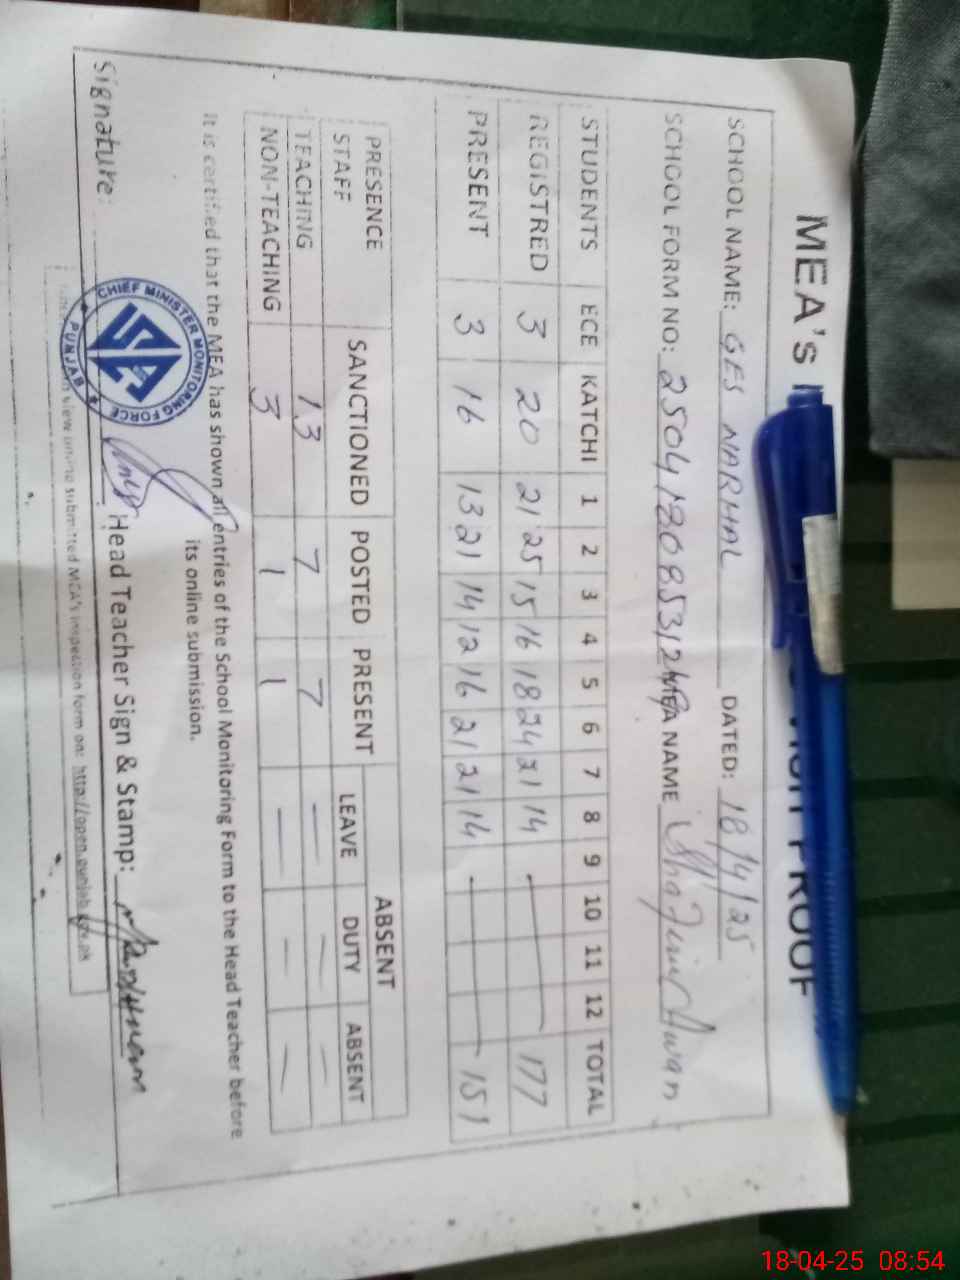 MEA's
PROOF
SCHOOL NAME: GES NARMAL DATED: 18/4/25
SCHOOL FORM NO: MEA NAME Awan
STUDENTS ECE KATCHI 1 2 3 4 5 6 7 8 9 10 11 12 TOTAL
REGISTRED 3 20 21 25 15 16 18 24 21 14 177
PRESENT 3 16 13 21 14 12 16 21 21 14 151
PRESENCE STAFF SANCTIONED POSTED PRESENT ABSENT
LEAVE DUTY ABSENT
TEACHING 13 7 7 — — —
NON-TEACHING 3 1 1 — — —
It is certified that the MEA has shown all entries of the School Monitoring Form to the Head Teacher before
its online submission.
Signature: Head Teacher Sign & Stamp:
CHIEF MINISTER MONITORING FORCE
PUNJAB
view online submitted MEA's inspection form on: http://open.punjab.gov.pk
18-04-25 08:54